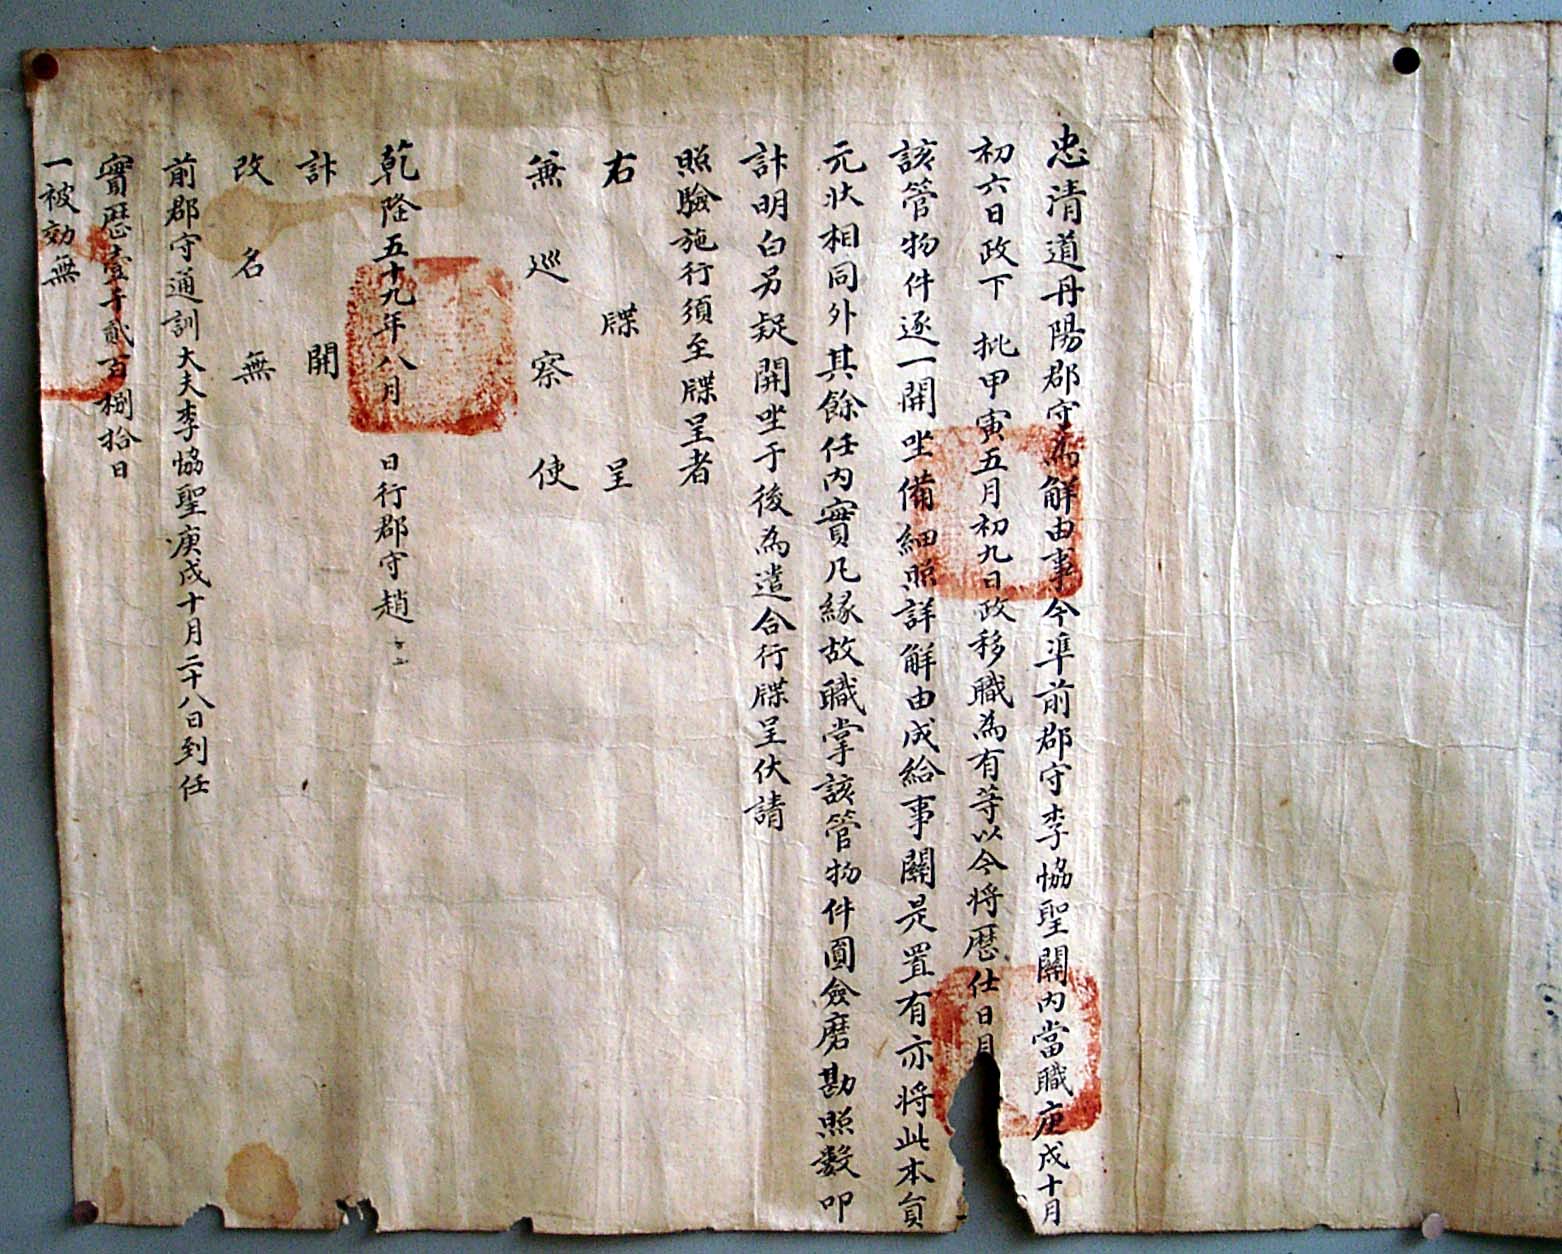 忠清道丹陽郡守為解由事今準前郡守李協聖關內當職庚戌十月
初六日政下批甲寅五月初九日政移職為有等以今將歷仕日月
該管物件逐一開坐備細照詳解由成給事關是置有亦將此本員
元狀相同外其餘任內實凡緣故職掌該管物件圓僉磨勘照數叩
訃明白另疑開坐于後為遣合行牒呈伏請
照驗施行須至牒呈者
右牒呈
兼巡察使
乾隆五十九年八月日行郡守趙
訃開
改名無
前郡守通訓大夫李協聖庚戌十月二十八日到任
實歷壹千貳百捌拾日
一被劾無